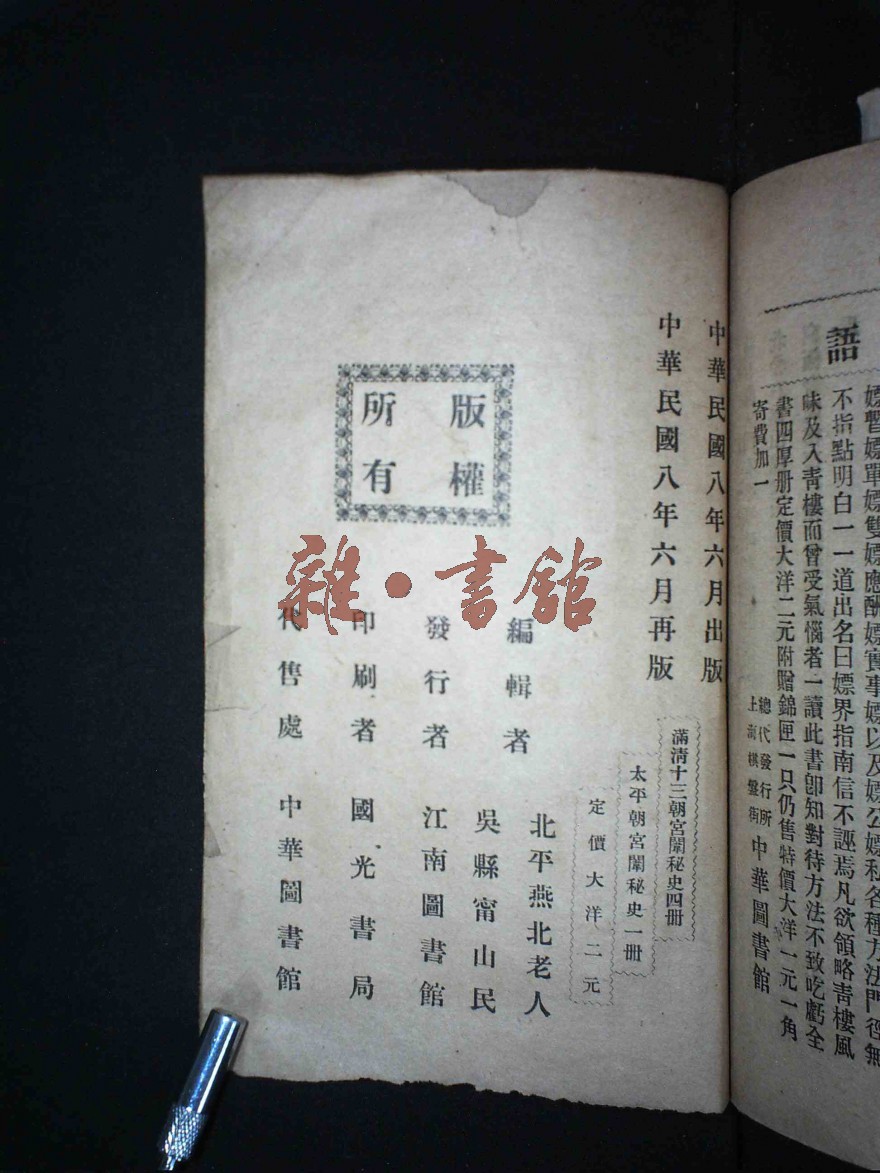 語
嫖暫嫖單嫖雙嫖應酬嫖實事嫖以及嫖公嫖私各種方法門徑無
不指點明白一一道出名曰嫖界指南信不誣焉凡欲領略青樓風
味及入青樓而曾受氣惱者一讀此書卽知對待方法不致吃虧全
書四厚册定價大洋二元附贈錦匣一只仍售特價大洋一元一角
寄費加一
總代發行所
上海棋盤街
中華圖書館
中華民國八年六月出版
中華民國八年六月再版
滿清十三朝宮闈秘史四册
太平朝宮闈秘史一册
定價大洋二元
版權
所有
編輯者
北平燕北老人
吳縣甯山民
發行者 江南圖書館
印刷者 國光書局
代售處 中華圖書館
雜·書館